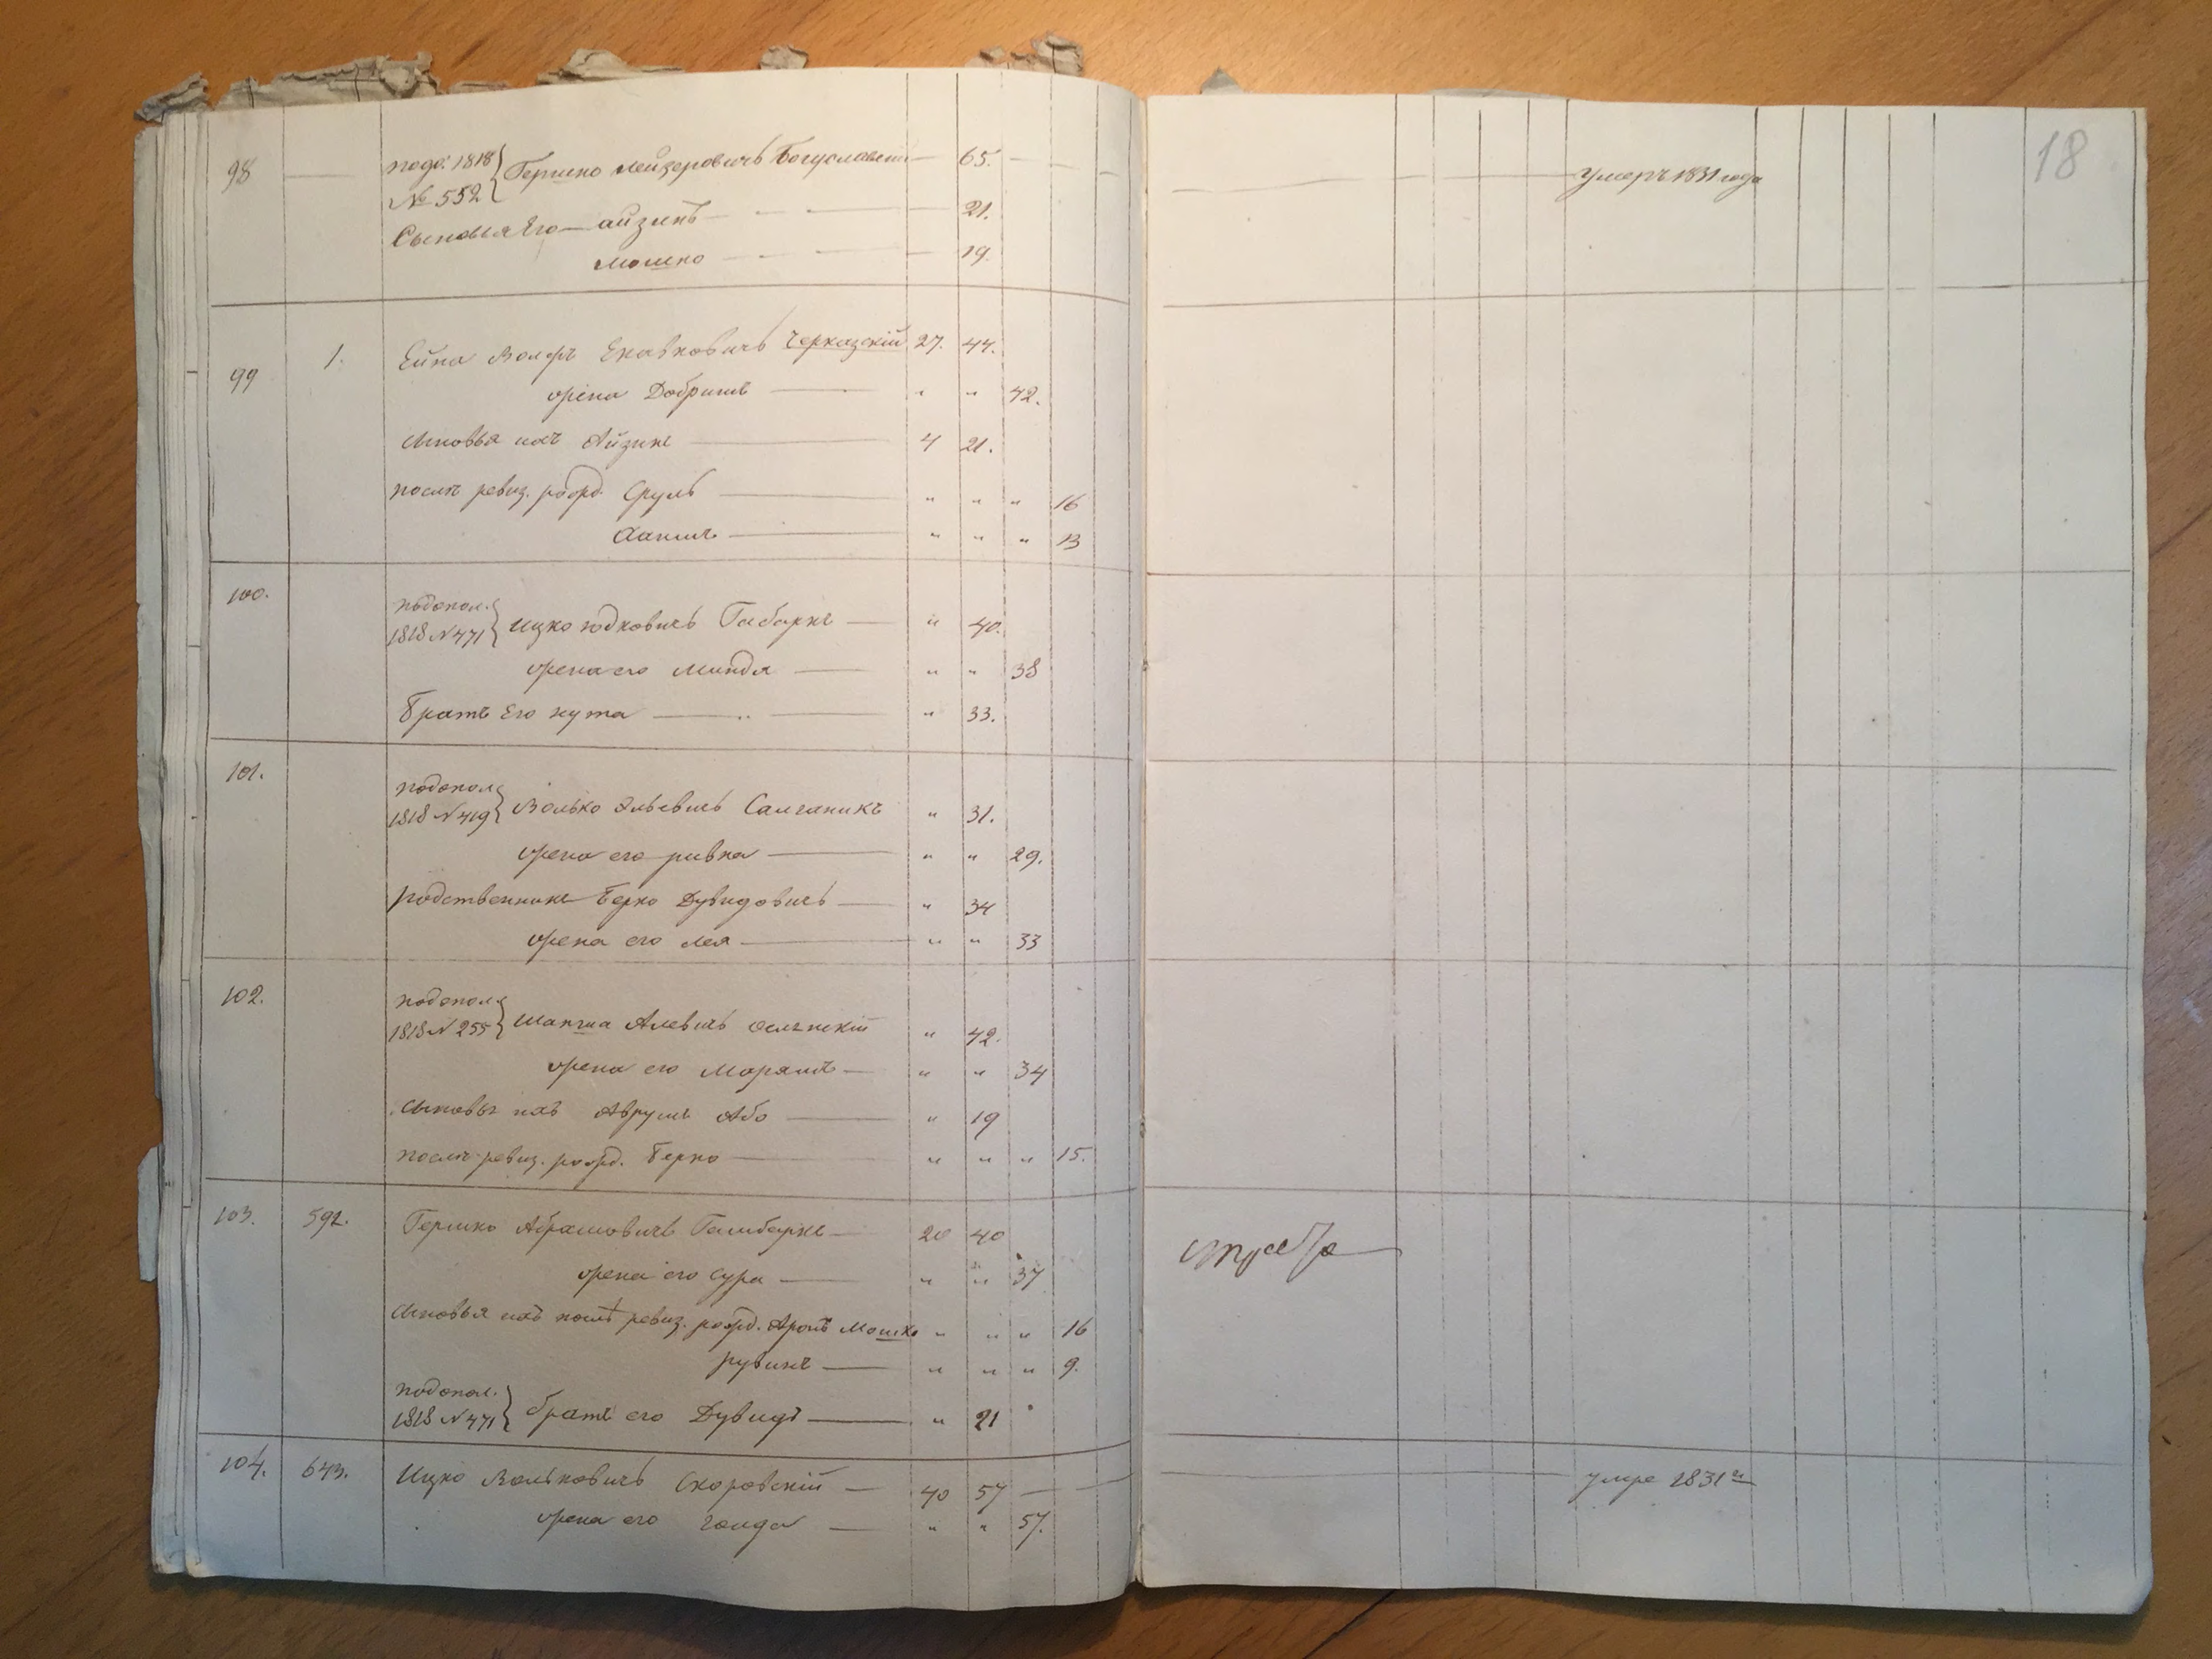 18
98 подо: 1818 Гершко Лейзеровичъ Богуславскій 65. умеръ 1831 года
№ 552
Сыновья его Айзикъ 21.
Мошко 19.
99 1. Волфъ Черкаскій 27. 44.
жена Добришъ " " 42.
сыновья ихъ Айзикъ 4 21.
послѣ ревиз. рожд. Сруль " " " 16
" " " 13
100. подопол.
1818 N 471 Ицко Юдковичъ " 40.
жена его Минда " " 38
братъ его Нута " 33.
101. подопол
1818 N 419 Волько Эльевичъ Салганикъ " 31.
жена его Ривка " " 29.
родственникъ Берко Дувидовичъ " 34
жена его Лея " " 33
102. подопол.
1818 N 255 " 42.
жена его Маряшъ " " 34
сыновья ихъ Аврумъ Або " 19
послѣ ревиз. рожд. Берко " " " 15.
103. 592. Гершко Абрамовичъ 20 40
жена его Сура " " 37
сыновья ихъ послѣ ревиз. рожд. Аронъ Мошко " " " 16
Рувинъ " " " 9.
подопол.
1818 N 471 братъ его Дувидъ " 21
104. 643. Ицко Вольковичъ Скоровскій 40 57 умре 1831
жена его " " 57.